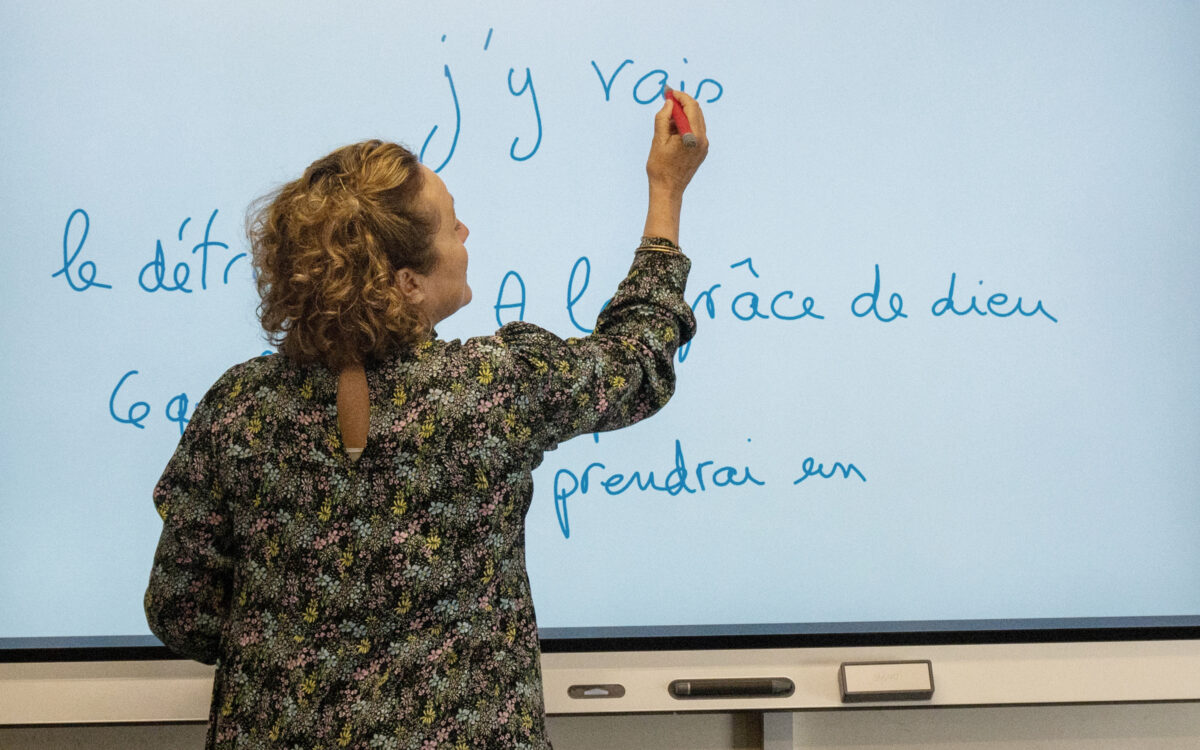 j'y vais
le détr A la grâce de dieu
prendrai un